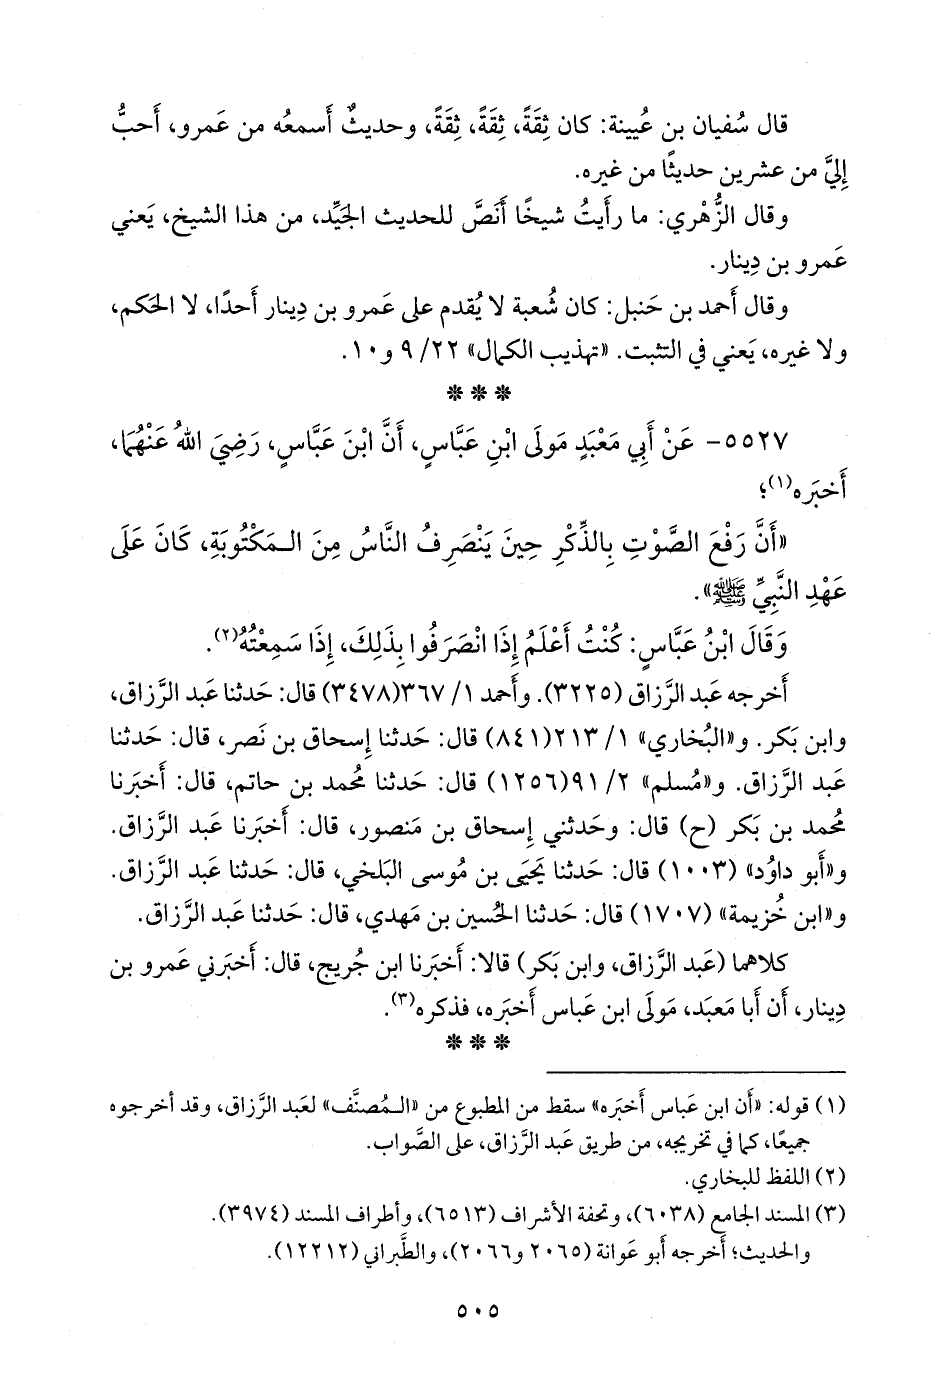 قال سُفيان بن عُيينة: كان ثِقَةً، ثِقَةً، ثِقَةً، وحديثٌ أَسمعُه من عَمرو، أَحبُّ
إِليَّ من عشرين حديثًا من غيره.
وقال الزُّهْري: ما رأَيتُ شيخًا أَنَصَّ للحديث الجَيِّد، من هذا الشيخ، يَعني
عَمرو بن دِينار.
وقال أَحمد بن حَنبل: كان شُعبة لا يُقدم على عَمرو بن دِينار أَحدًا، لا الحَكم،
ولا غيره، يَعني في التثبت. «تهذيب الكمال» ٢٢/ ٩ و١٠.
***
٥٥٢٧- عَنْ أَبِي مَعْبَدٍ مَولَى ابْنِ عَبَّاسٍ، أَنَّ ابْنَ عَبَّاسٍ، رَضِيَ اللهُ عَنْهُمَا،
أَخبَره(١)؛
«أَنَّ رَفْعَ الصَّوْتِ بِالذِّكْرِ حِينَ يَنْصَرِفُ النَّاسُ مِنَ الـمَكْتُوبَةِ، كَانَ عَلَى
عَهْدِ النَّبِيِّ ﷺ».
وَقَالَ ابْنُ عَبَّاسٍ: كُنْتُ أَعْلَمُ إِذَا انْصَرَفُوا بِذَلِكَ، إِذَا سَمِعْتُهُ(٢).
أَخرجه عَبد الرَّزاق (٣٢٢٥). وأَحمد ١/ ٣٦٧(٣٤٧٨) قال: حَدثنا عَبد الرَّزاق،
وابن بَكر. و«البُخاري» ١/ ٢١٣(٨٤١) قال: حَدثنا إِسحاق بن نَصر، قال: حَدثنا
عَبد الرَّزاق. و«مُسلم» ٢/ ٩١(١٢٥٦) قال: حَدثنا مُحمد بن حاتم، قال: أَخبَرنا
مُحمد بن بَكر (ح) قال: وحَدثني إِسحاق بن مَنصور، قال: أَخبَرنا عَبد الرَّزاق.
و«أَبو داوُد» (١٠٠٣) قال: حَدثنا يَحيَى بن مُوسى البَلخي، قال: حَدثنا عَبد الرَّزاق.
و«ابن خُزيمة» (١٧٠٧) قال: حَدثنا الحُسين بن مَهدي، قال: حَدثنا عَبد الرَّزاق.
كلاهما (عَبد الرَّزاق، وابن بَكر) قالا: أَخبَرنا ابن جُريج، قال: أَخبَرني عَمرو بن
دِينار، أَن أَبا مَعبَد، مَولَى ابن عَباس أَخبَره، فذكره(٣).
***
(١) قوله: «أَن ابن عَباس أَخبَره» سقط من المطبوع من «الـمُصنَّف» لعَبد الرَّزاق، وقد أخرجوه
جميعًا، كما في تخريجه، من طريق عَبد الرَّزاق، على الصَّواب.
(٢) اللفظ للبخاري.
(٣) المسند الجامع (٦٠٣٨)، وتحفة الأشراف (٦٥١٣)، وأطراف المسند (٣٩٧٤).
والحديث؛ أَخرجه أَبو عَوانة (٢٠٦٥ و٢٠٦٦)، والطَّبراني (١٢٢١٢).
٥٠٥